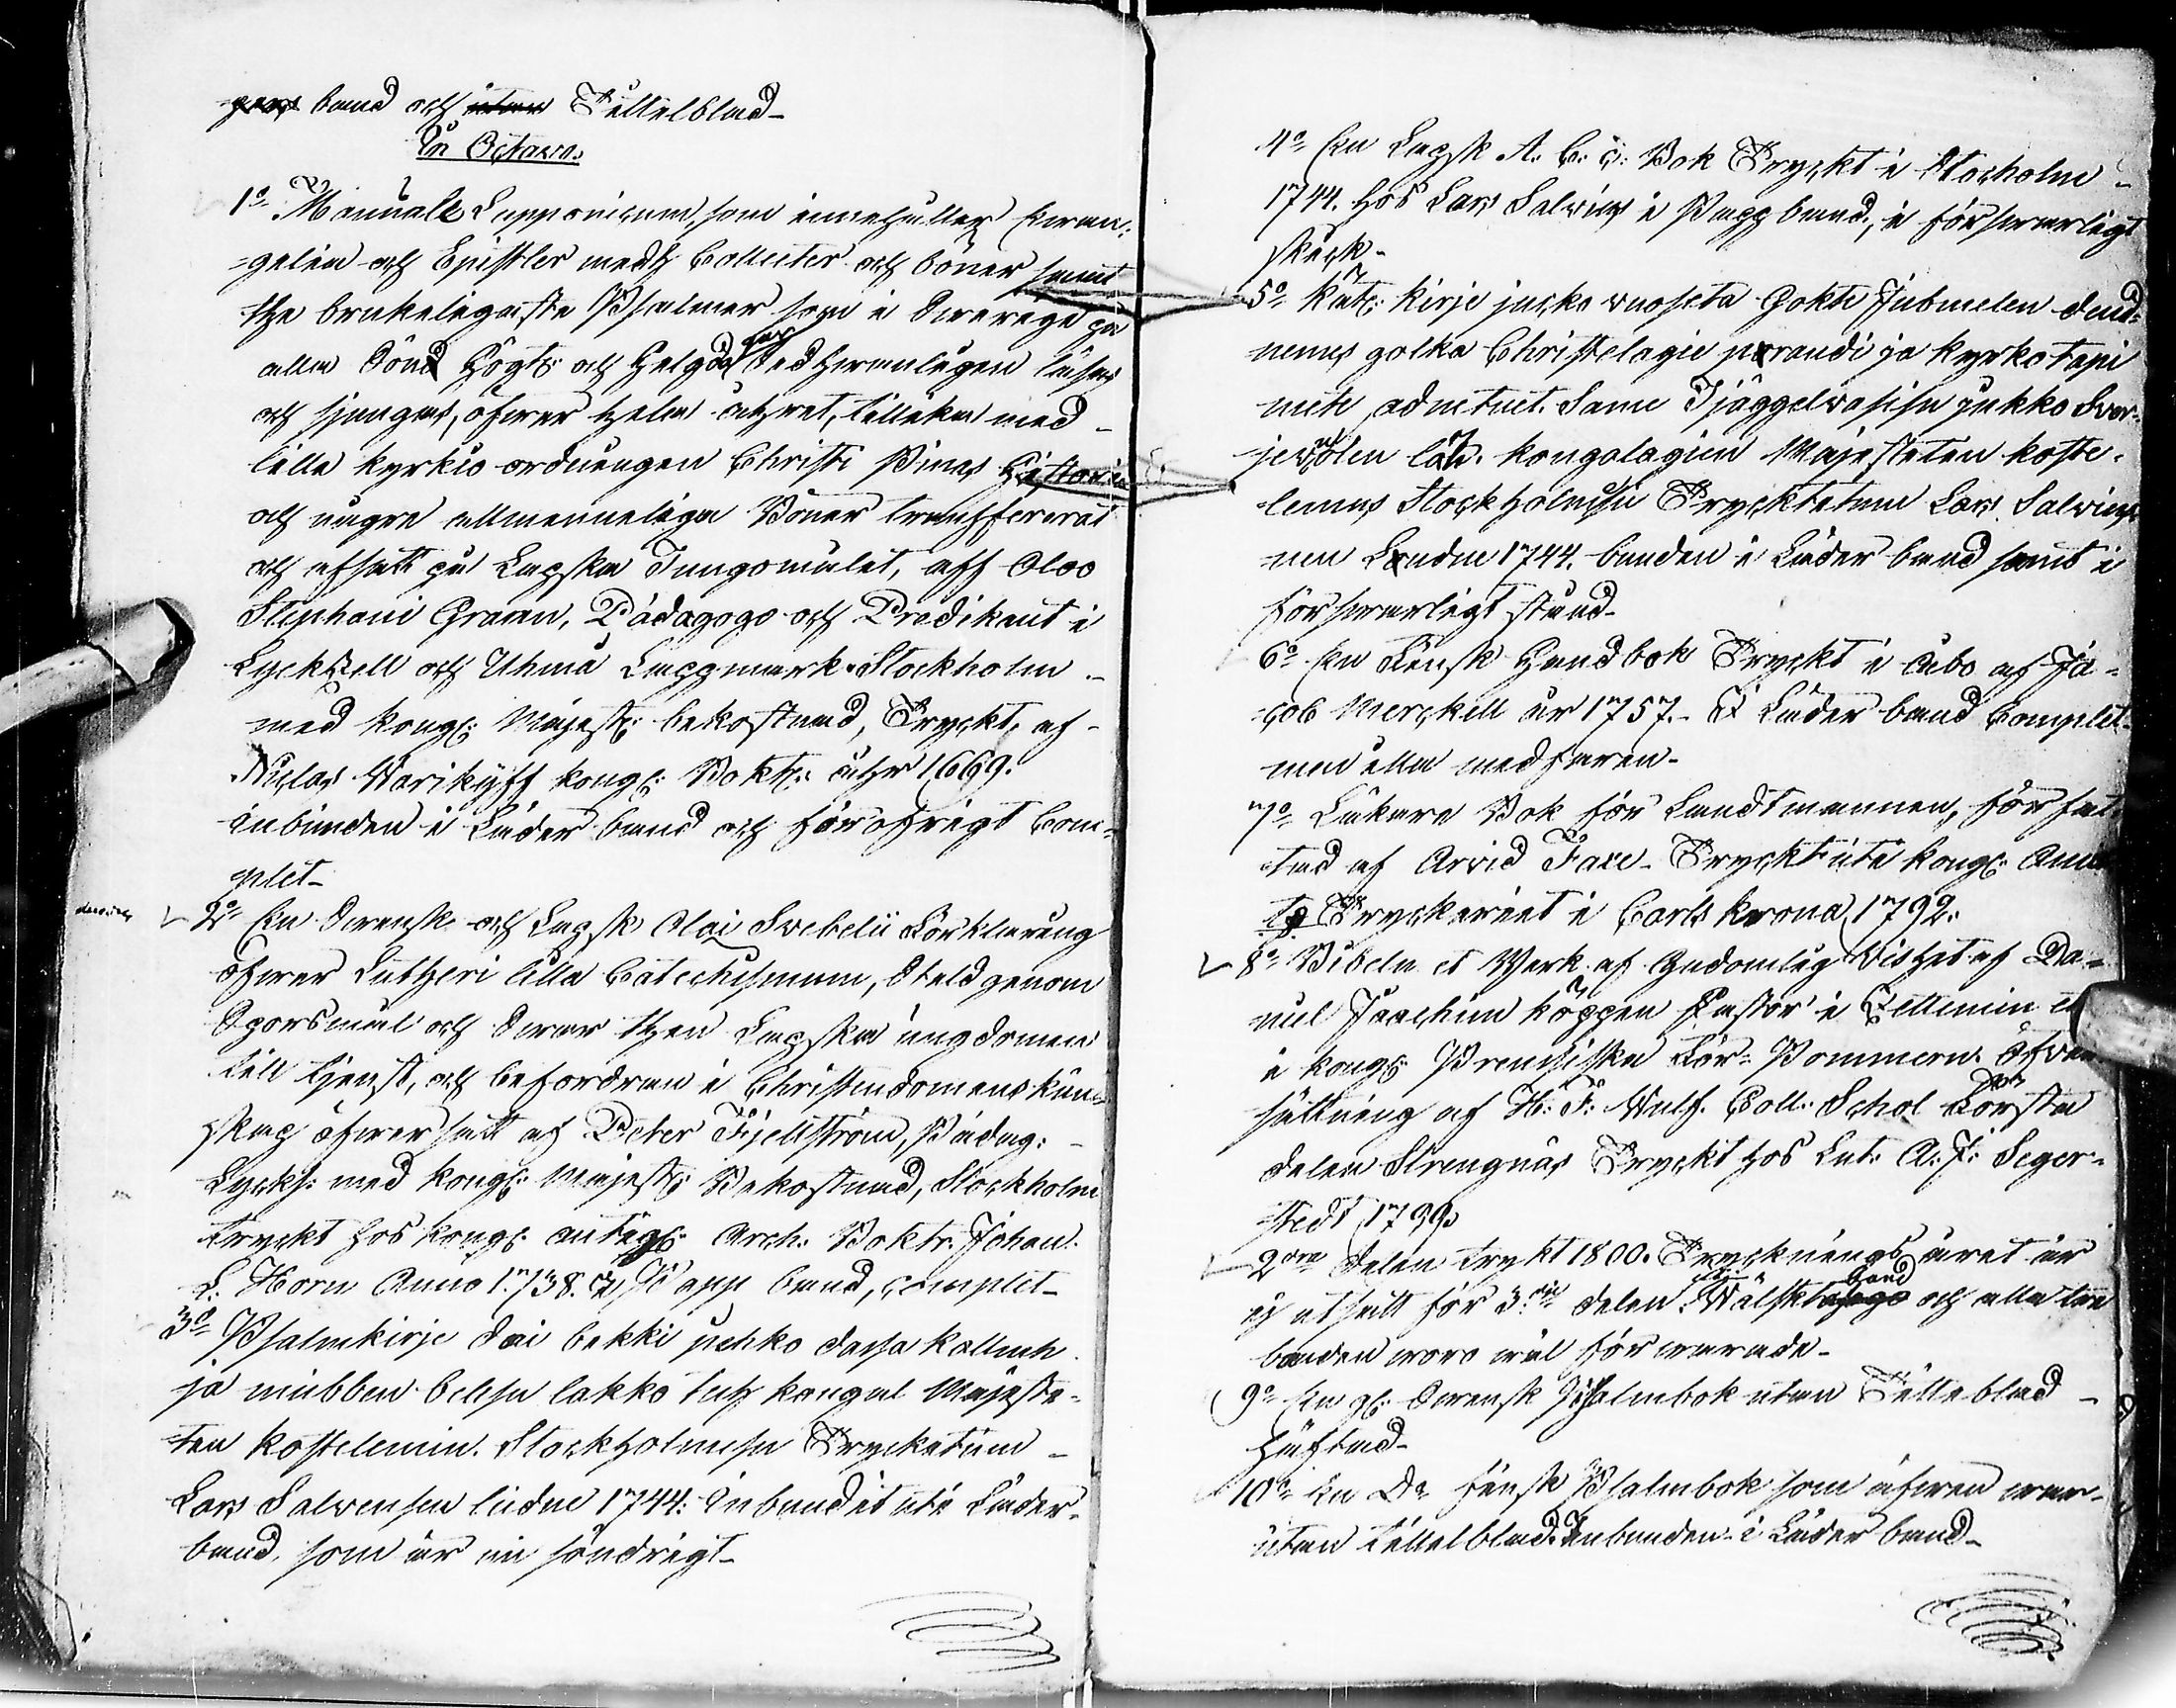 band och utan Tittelblad-
In Octavo.
1o Manuale Lapponicum, som innehåller Ewan-
gelia och Epistler medh Collecter och böner samt
the brukeligaste Psalmer som i Swerege på
alla Sönd Högt: och Helgdagar Sedhwanligen läsas
och sjungas, öfwer hela åhret, tillika med
lilla kyrkio ordningen Christi Pinas Historia
och några allmenneliga Böner transfererat
och afsatt på Lapska Tungomålet, aff Olao
Stephani Graan, Pädagogo och Predikant i
Lycksell och Uhmå Lappmark. Stockholm
med kongl: Majest: bekostnad, Tryckt, af
Niclas Wankijff kongl: Boktr: åhr 1669.
inbunden i Läder band och för öfrigt Com-
plet-
2o En Swensk och Lapsk Olai Swebelii Förklaring
öfwer Lutheri lilla Catechismum, Steld genom
Spörsmål och Swar then Lapska ungdomen
till tjenst, och befordran i Christendomens kun-
skap öfwer satt af Peter Fjellström, Pädag:
Lycks: med kongl: Majest: Bekostnad, Stockholm
tryckt hos kongl: antiqv: Arch: Boktr. Johan
L: Horn Anno 1738. i Papp band, complet-
3o Psalmkirje dai bekki jukko dassa kallueh
ja mubben beliesn lakko leh kongal Majeste-
ten kostelemin. Stockholmesn Trycketum
Lars Salvensen ludne 1744: Inbundit uti Läder-
band, som är nu söndrigt-
4o En Lapsk A: B: C: Bok Tryckt i Stockholm
1744. hos Lars Salvius i Papp band, i försvarligt
skick-
5o Kät: kirje jucko vuoseta Gokte Jubmelen dend-
nemus golka Christelagie porandi ja kyrkotapi
niete adnetuet. Same Tjäggelvasisn jukko Sver-
jen län. kongalagien Majesteten koste-
lemus Stockholmesn Trycktetum Lars Salvius
nen Luudne 1744. bunden i Läder band samt i
försvarligt stånd-
6o En Finsk Handbok Tryckt i Åbo af Ja-
cob Merckell år 1757.- I Läder band Complet-
men illa medfaren-
7o Läkare Bok för Landtmannen, för fat-
tad af Arvid Faxe- Tryckt uti kongl: Am-
ts Tryckeriet i Carlskrona 1792.
8o Bibeln et Werk af Gudomlig Wishet af Da-
niel Joachim Köppen Pastor i Zettemin
i kongl: Preussiska För- Pommern. Öfver
sättning af H: F: Wulf. Coll: Schol Första
delen Strengnäs Tryckt hos Lut: A: J: Seger-
stedt 1799.
2ora delen trykt 1800. Trycknings året är
ej utsatt för 3:die delen. Wälskt band och alla tre
banden woro wäl förwarade-
9o En gl: Swensk Psalmbok utan Titteblad
Häftad-
10o En Do finsk Psalmbok som äfwen war
utan tittelblad. Inbunden i Läder band-